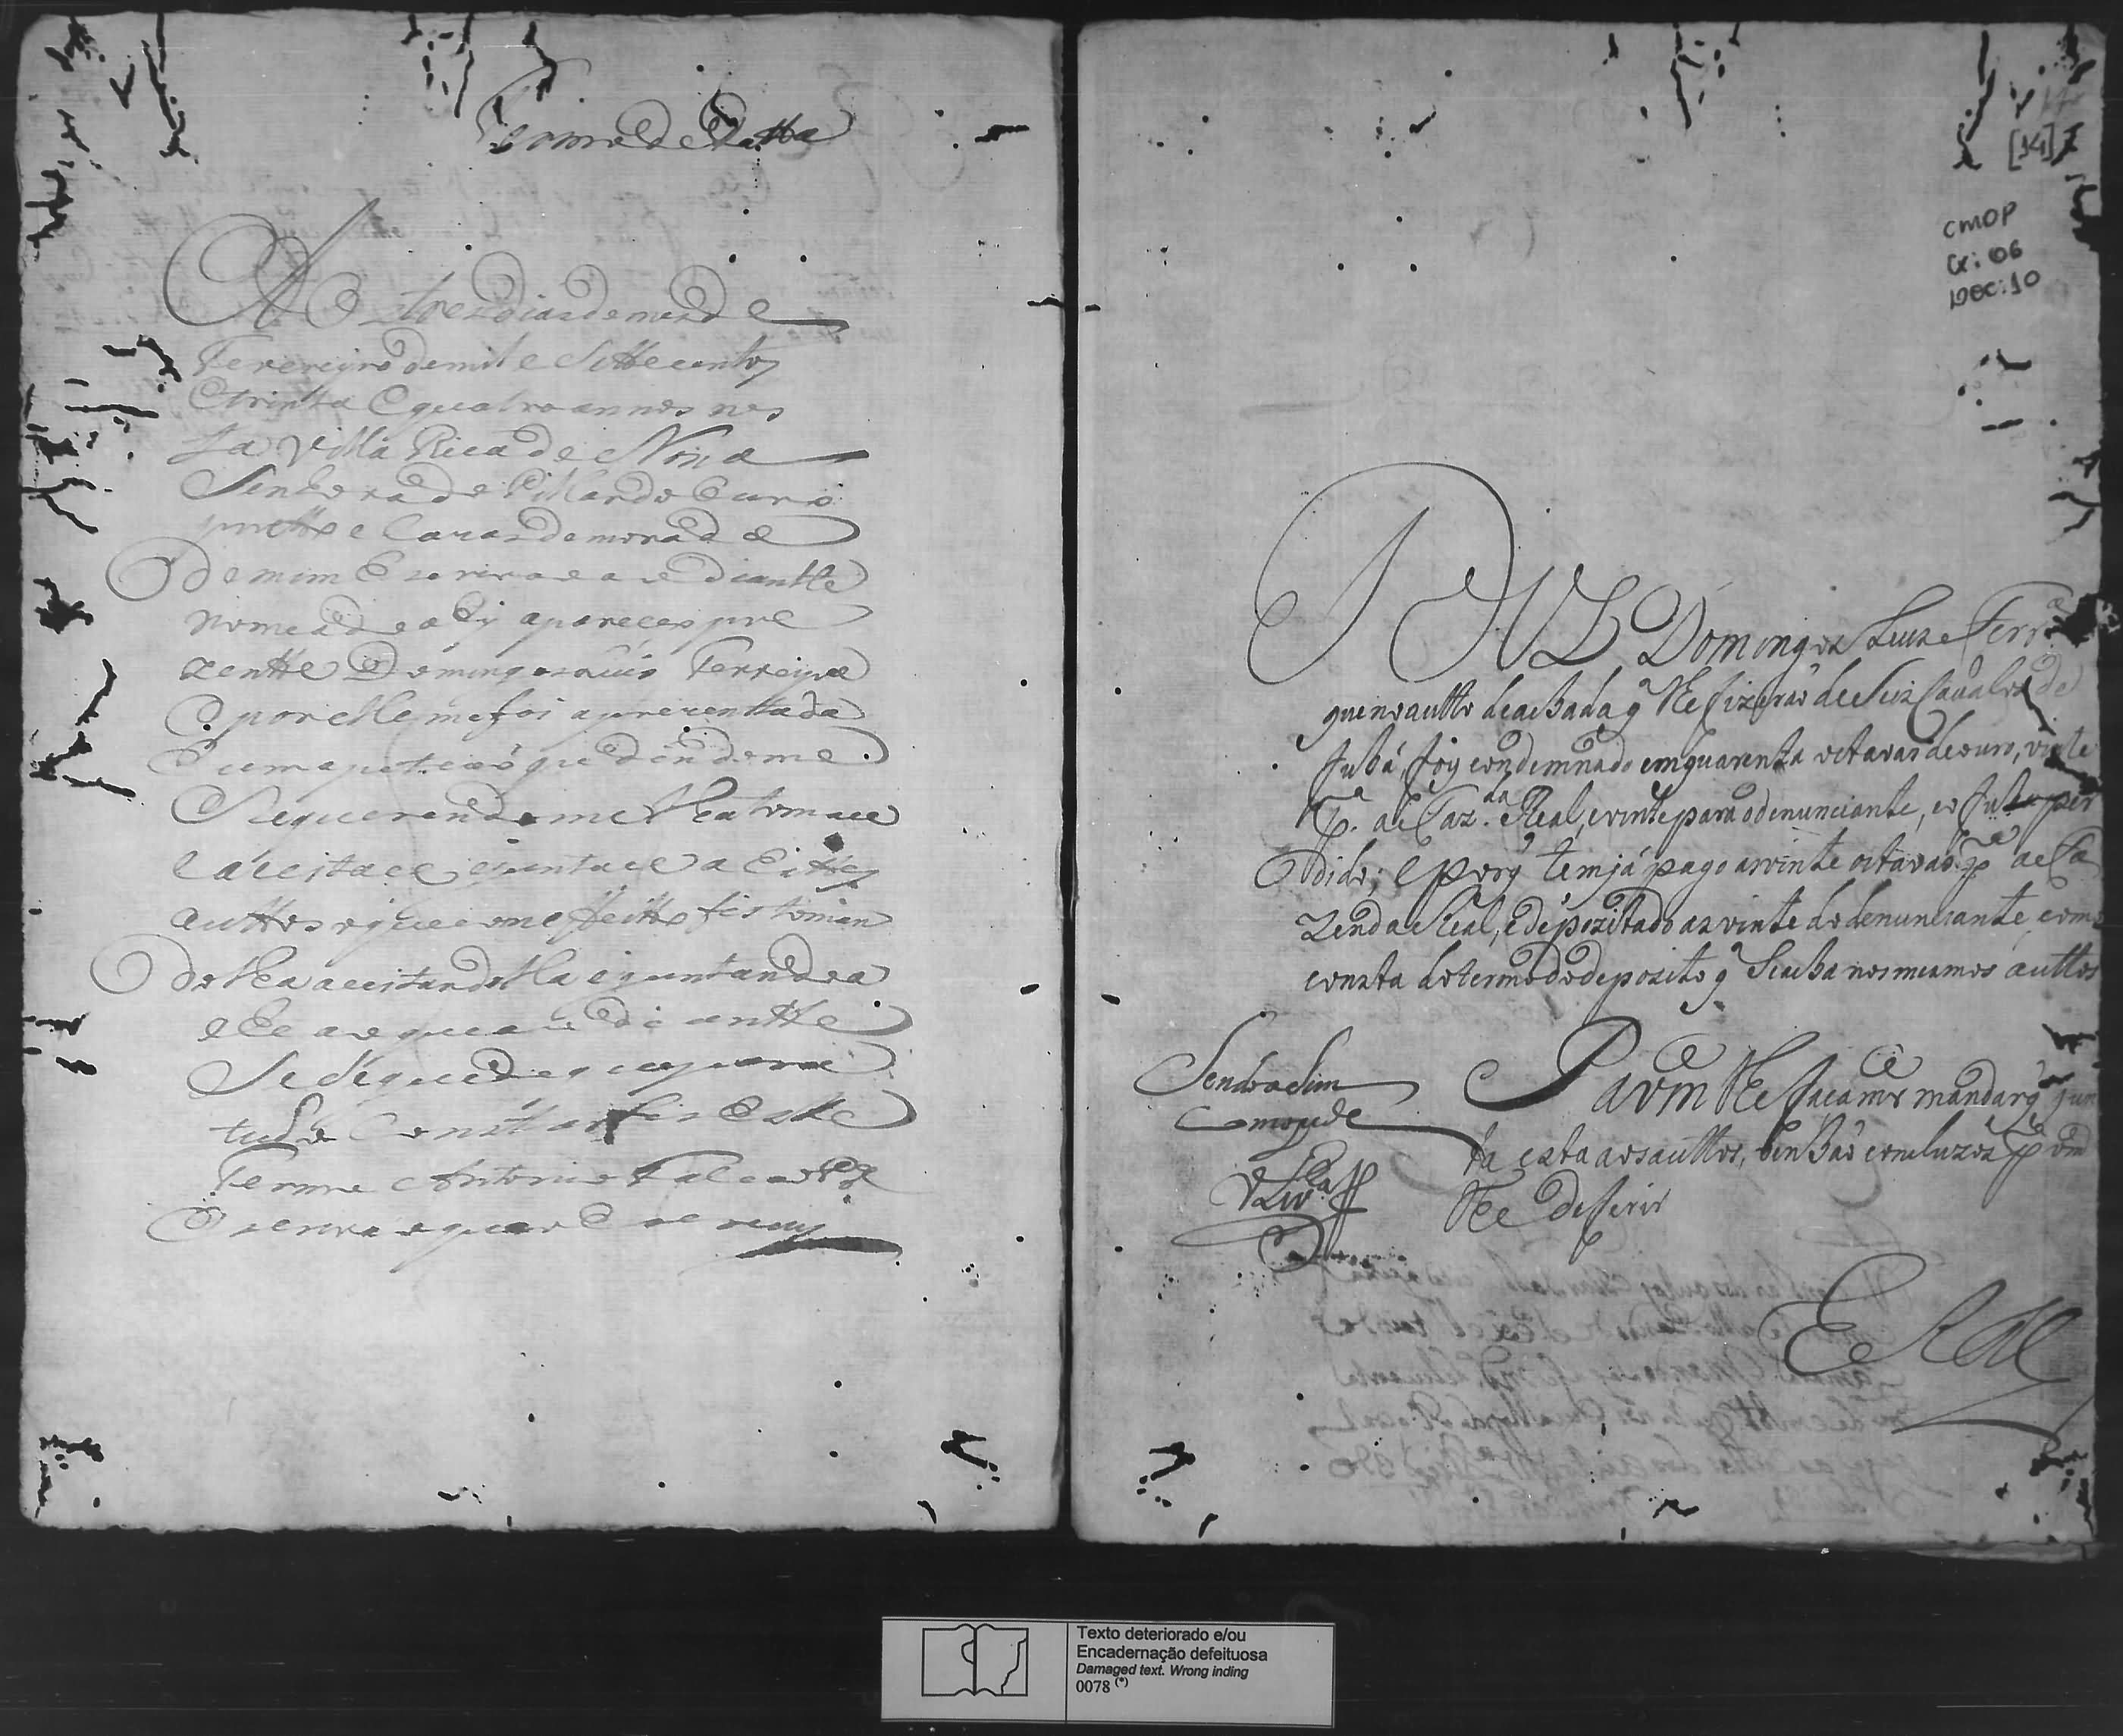 Termo de Datta
Aos tres dias do mes de
Fevereiro de mil e Sette centos
e trinta e quatro annos nes
ta Villa Rica de Nossa
Senhora do Pillar do Ouro
pretto e Cazas de morada
de mim Escrivam ao diantte
nomeado ahy apareceo pre
zentte Domingos Luis Ferreira
e por elle me foi aprezentada
huma petiçaõ que dendome
Requerendome lha tomace
e aceitace e juntace a Estes
auttos o que com effeitto fis toman
dolha aceitandolha e juntandoa
e he a que ao diantte
Se Segue de que para
tudo Constar fis Este
Termo Antonio Falcaõ
Escrivaõ que o Escrevy
[14]
CMOP
Cx: 06
DOC: 10
Diz Domingos Luis Ferr.ª
que no autto de achada q̃ lhe fizeraõ de Seis Cavalos de
Jubá, foy condemnado em quarenta octavas de ouro, vinte
p.ª a Faz.da Real, e vinte para o denunciante, e o per
dido; e porq̃ tem já pago as vinte oitavas p.ª a Fa
zenda Real, e depozitado as vinte do denunciante, como
consta do termo do deposito q̃ Se acha nos mesmos auttos
Sendo asim
Como pede
V.ª
P. a vm.ce lhe faça m.ce mandar q̃ jun
ta esta aos auttos, venhaõ concluzos p.ª vm.
lhe deferir
E R M.ce
Texto deteriorado e/ou
Encadernação defeituosa
Damaged text. Wrong inding
0078 (*)